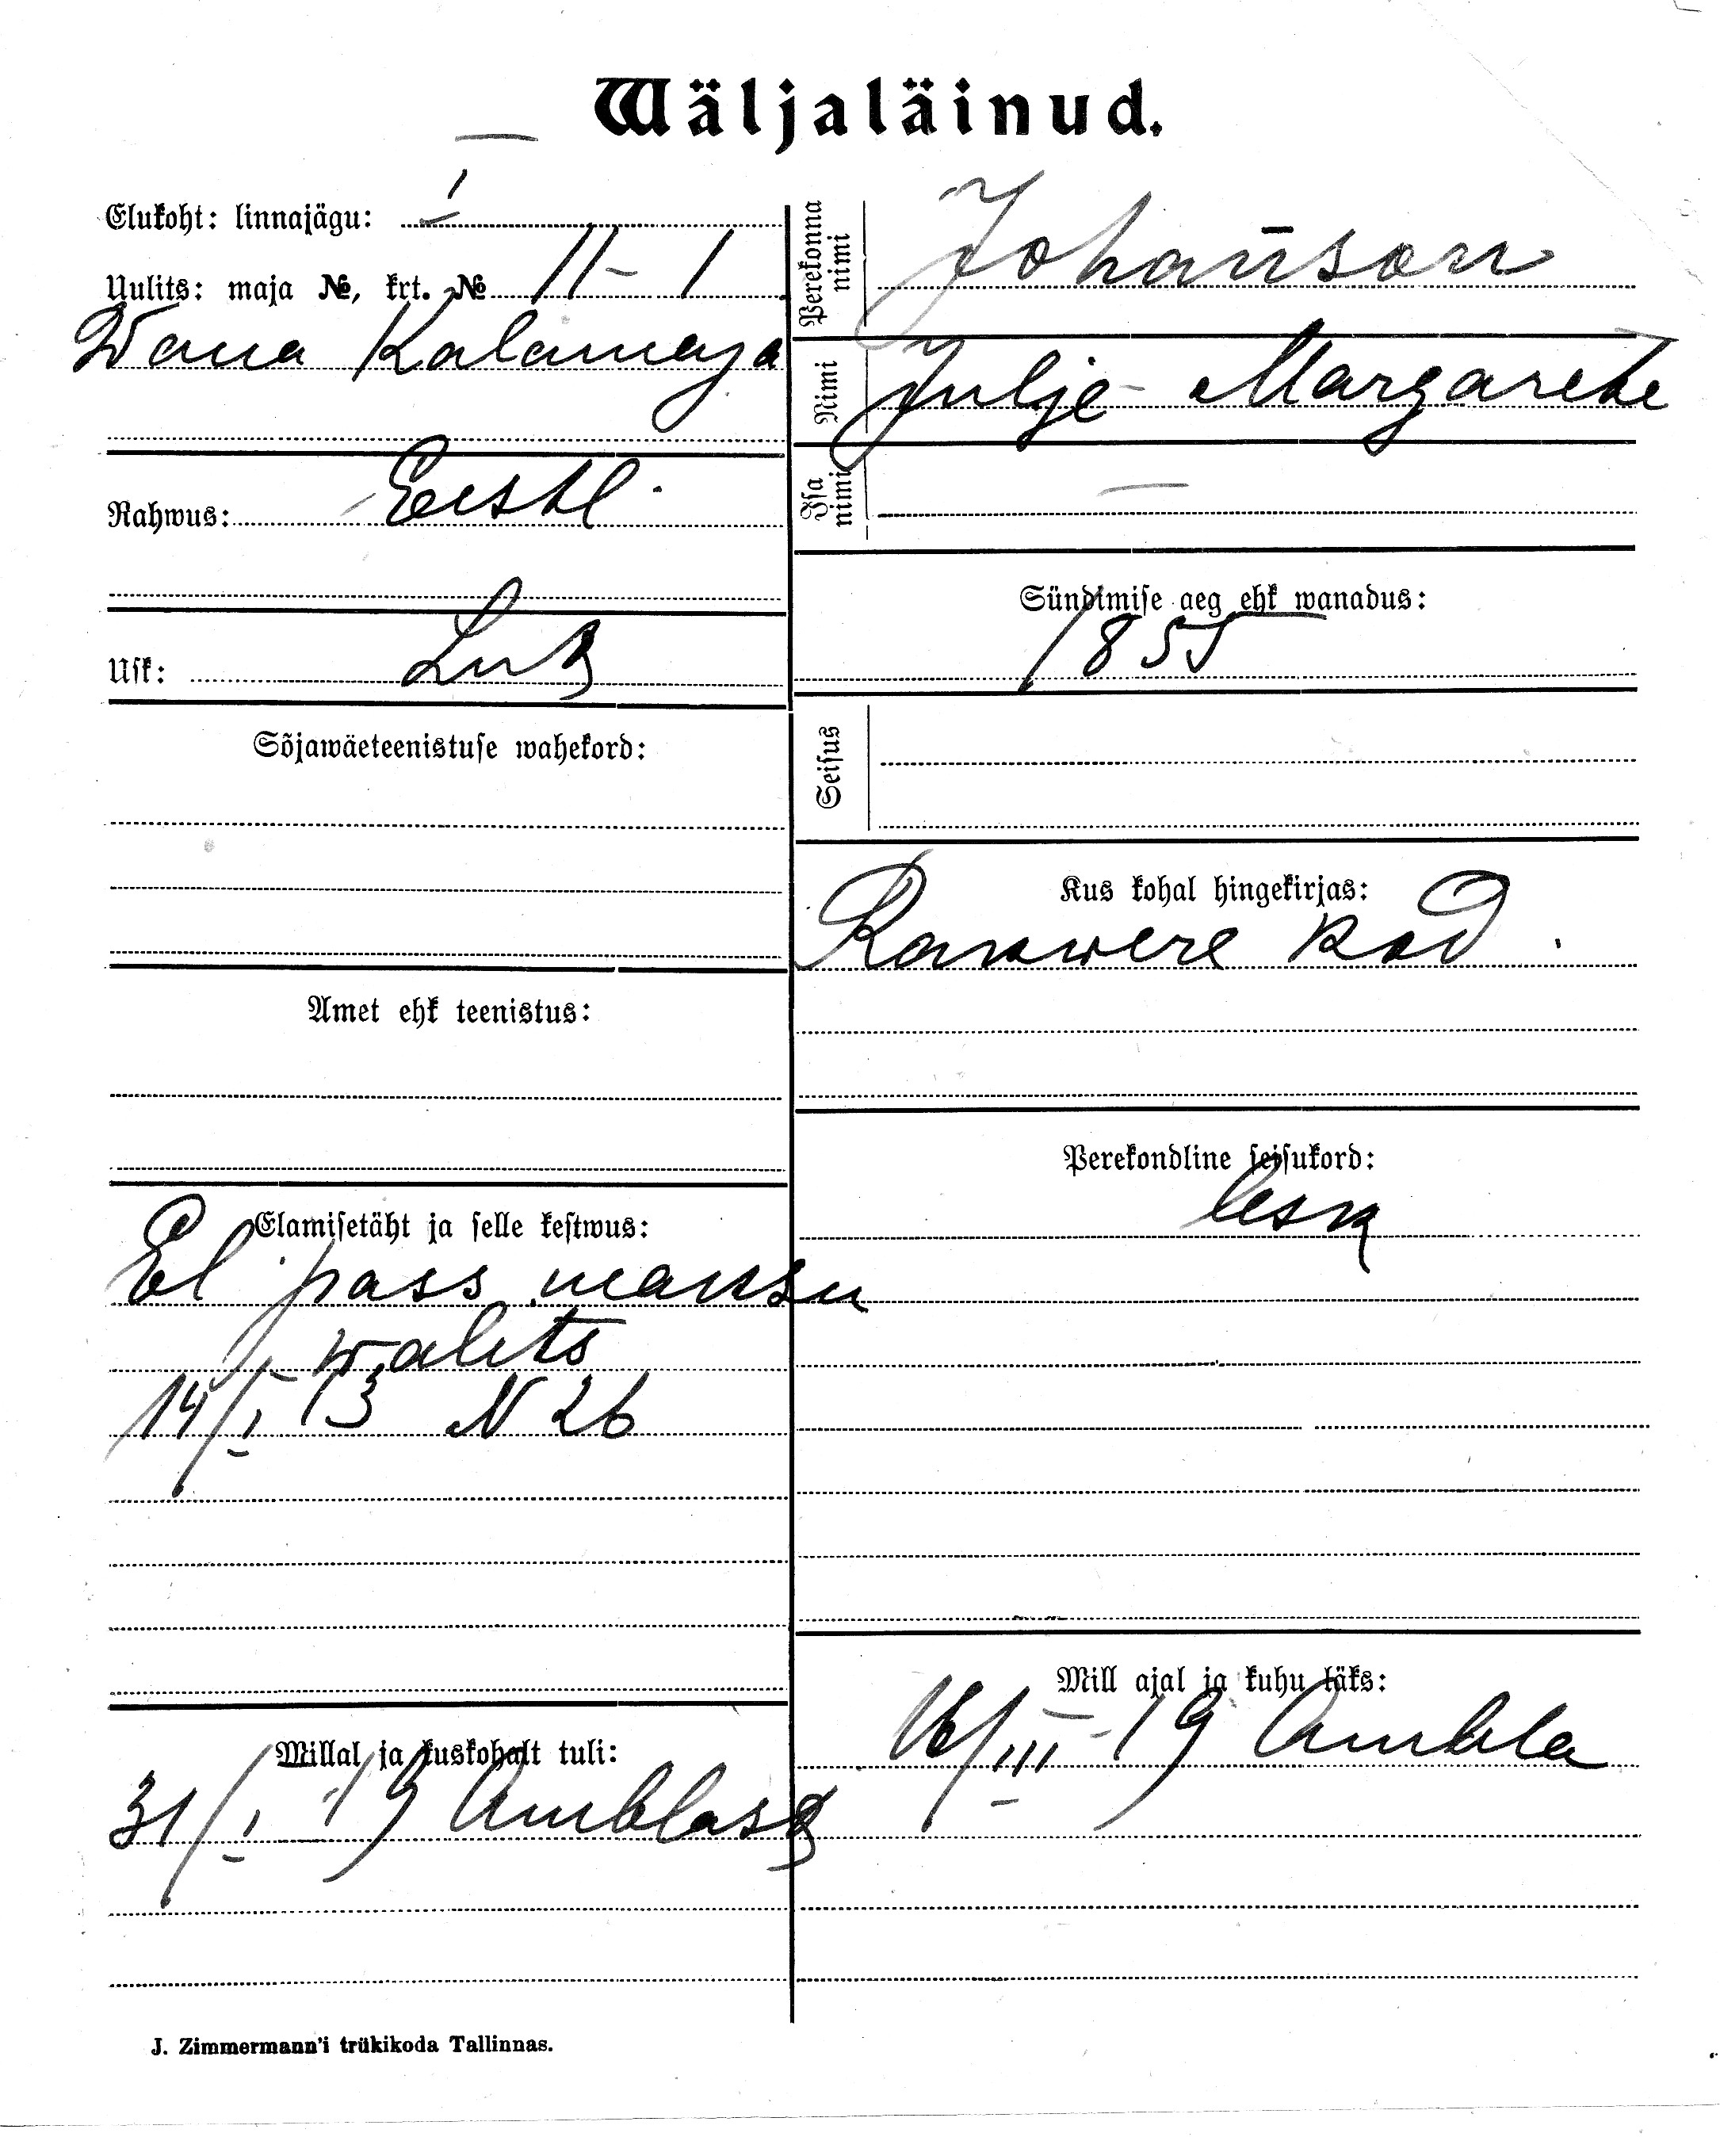 Wäljaläinud.
Elukoht: linnajägu: I
Uulits: maja №, krt. № 11 – 1
Wana Kalamaja
Rahwus: Eesti
Usk: Lut
Sõjawäeteenistuse wahekord:
Amet ehk teenistus:
Elamisetäht ja selle kestwus:
El pass maksu
walits
14/I 13 N 26
Millal ja kuskohalt tuli:
31/I 19 Amblast
Perekonna nimi Johanson
Nimi Julje Margarete
Isa nimi —
Sündimise aeg ehk wanadus:
1855
Seisus
Kus kohal hingekirjas:
Rakwere kod.
Perekondline seisukord:
lesk
Mill ajal ja kuhu läks:
16/III 19 Ambla
J. Zimmermann'i trükikoda Tallinnas.